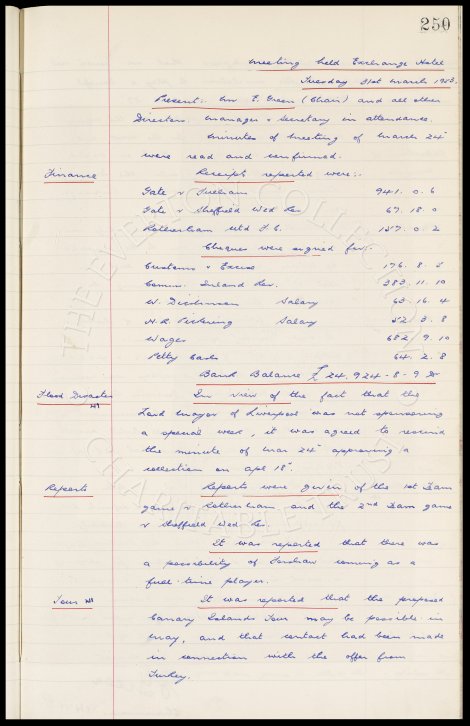 250
Meeting held Exchange Hotel
Tuesday 31st March 1953.
Present: Mr E. Green (Chair) and all other
Directors. Manager & Secretary in attendance.
Minutes of Meeting of March 24th
were read and confirmed.
Finance Receipts reported were:-
Gate v Fulham 941. 0. 6
Gate v Sheffield Wed Res 67. 18. 0
Rotherham Utd F.C. 157. 0. 2
Cheques were signed for:-
Customs & Excise 176. 8. 5
Comm: Inland Rev. 383. 11. 10
W. Dickinson Salary 63. 16. 4
H.R. Pickering Salary 52. 3. 8
Wages 682. 9. 10
Petty Cash 64. 2. 8
Bank Balance £24,924-8-9
Flood Disaster In view of the fact that the
Lord Mayor of Liverpool was not sponsoring
a special week, it was agreed to rescind
the minute of Mar 24th approving a
collection on Apl 18th.
Reports Reports were given of the 1st Team
game v Rotherham and the 2nd Team game
v Sheffield Wed Res.
It was reported that there was
a possibility of Farshaw coming as a
full-time player.
Tour It was reported that the proposed
Canary Islands Tour may be possible in
May, and that contact had been made
in connection with the offer from
Turkey.
THE EVERTON COLLECTION
CHARITABLE TRUST